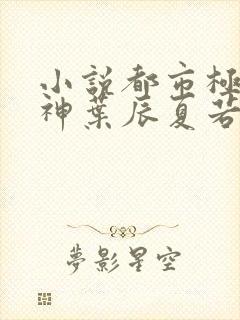 小說都市極
神葉辰夏若
夢影星空